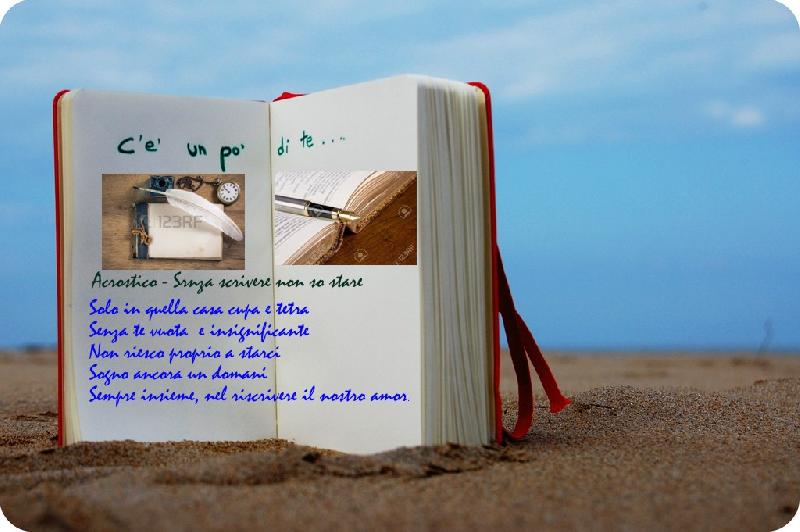 C'e' un po' di te...
123RF
Acrostico - Srnza scrivere non so stare
Solo in quella casa cupa e tetra
Senza te vuota e insignificante
Non riesco proprio a starci
Sogno ancora un domani
Sempre insieme, nel riscrivere il nostro amor.